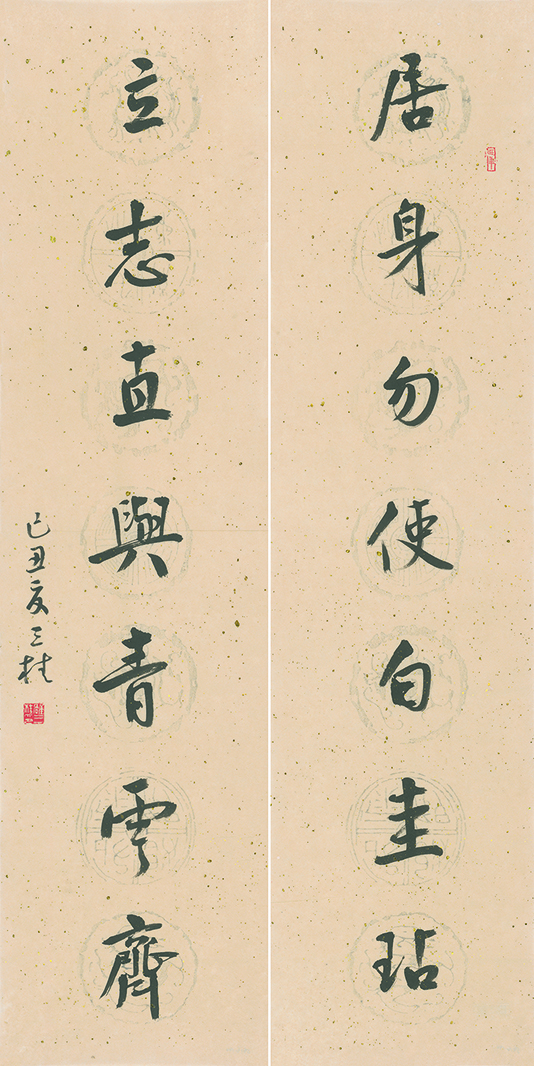 居身勿使白圭玷
立志直與青雲齊
己丑夏三桂